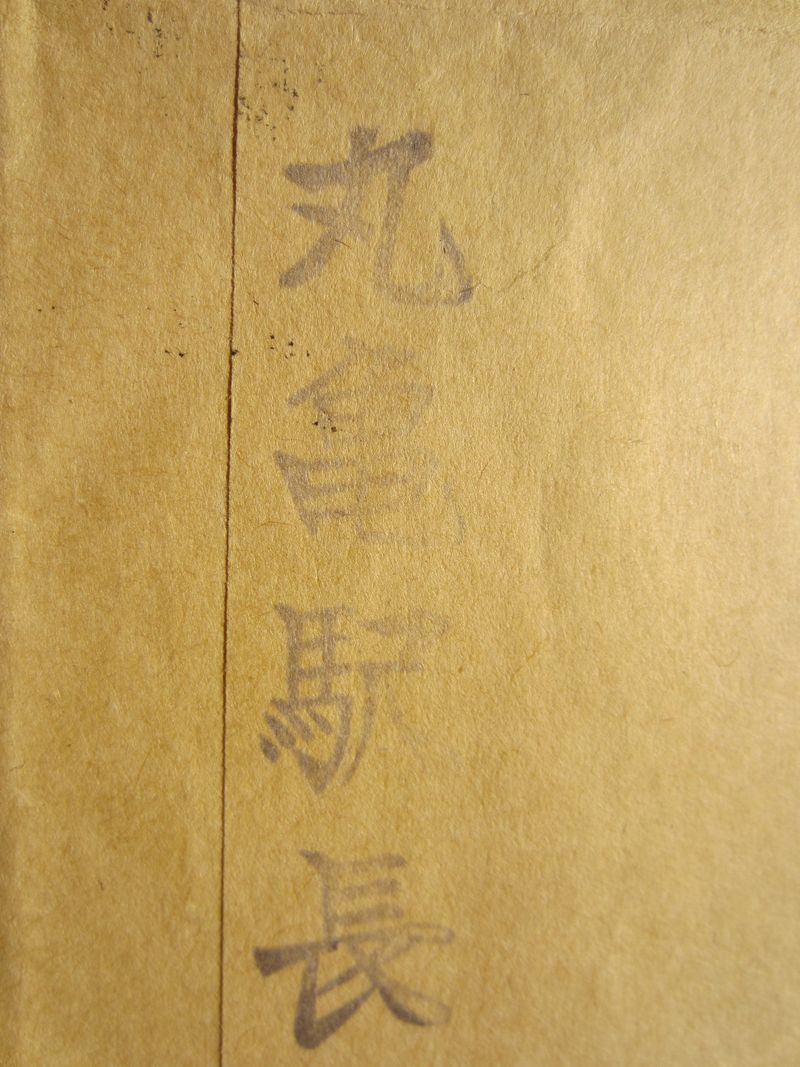 丸亀駅長